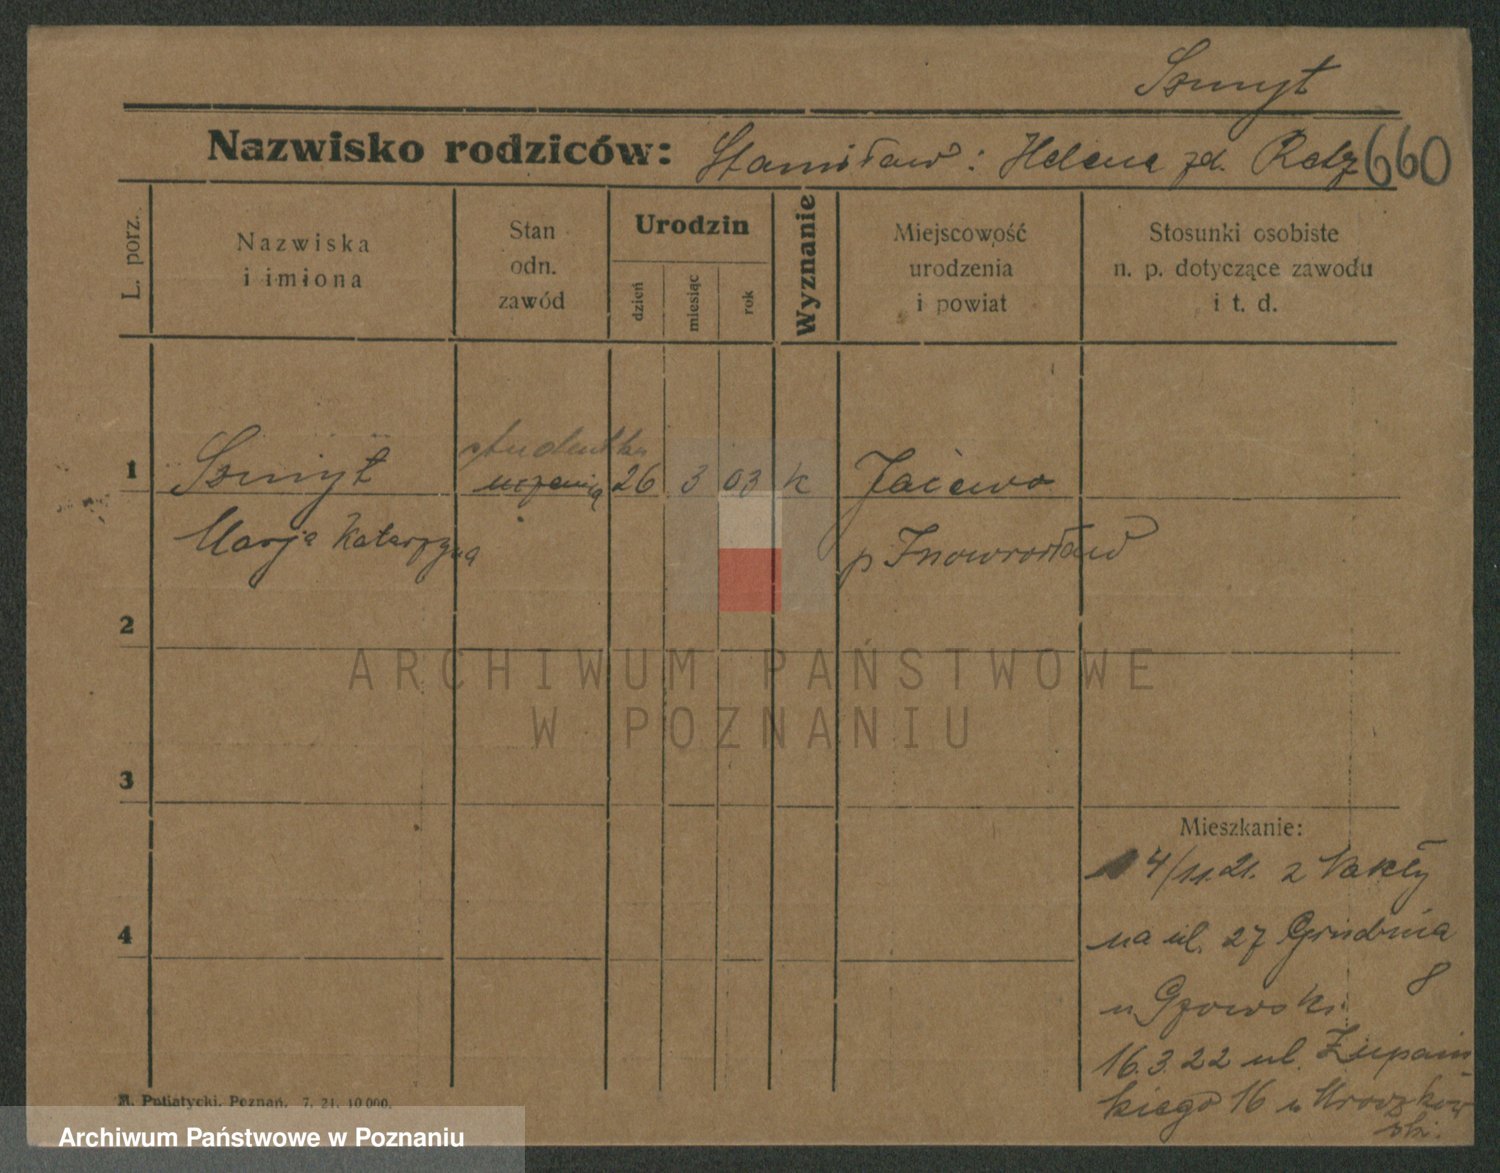 Szmyt
Nazwisko rodziców: Stanisław: Helena zd. Retz 660
L. porz.
Nazwiska
i imiona
Stan
odn.
zawód
Urodzin
dzień
miesiąc
rok
Wyznanie
Miejscowość
urodzenia
i powiat
Stosunki osobiste
n. p. dotyczące zawodu
i t. d.
studentka
1 Szmyt uczenica 26 3 03 k Jaćewo
Marja Katarzyna p Inowrocław
2
3
4
ARCHIWUM PAŃSTWOWE
W POZNANIU
Mieszkanie:
4/11.21. z
na ul. 27 Grudnia
8
u Gzowski
16.3.22 ul. Żupań
skiego 16 u Mroczkow
ski.
A. Putiatycki, Poznań. 7. 21. 10 000.
Archiwum Państwowe w Poznaniu